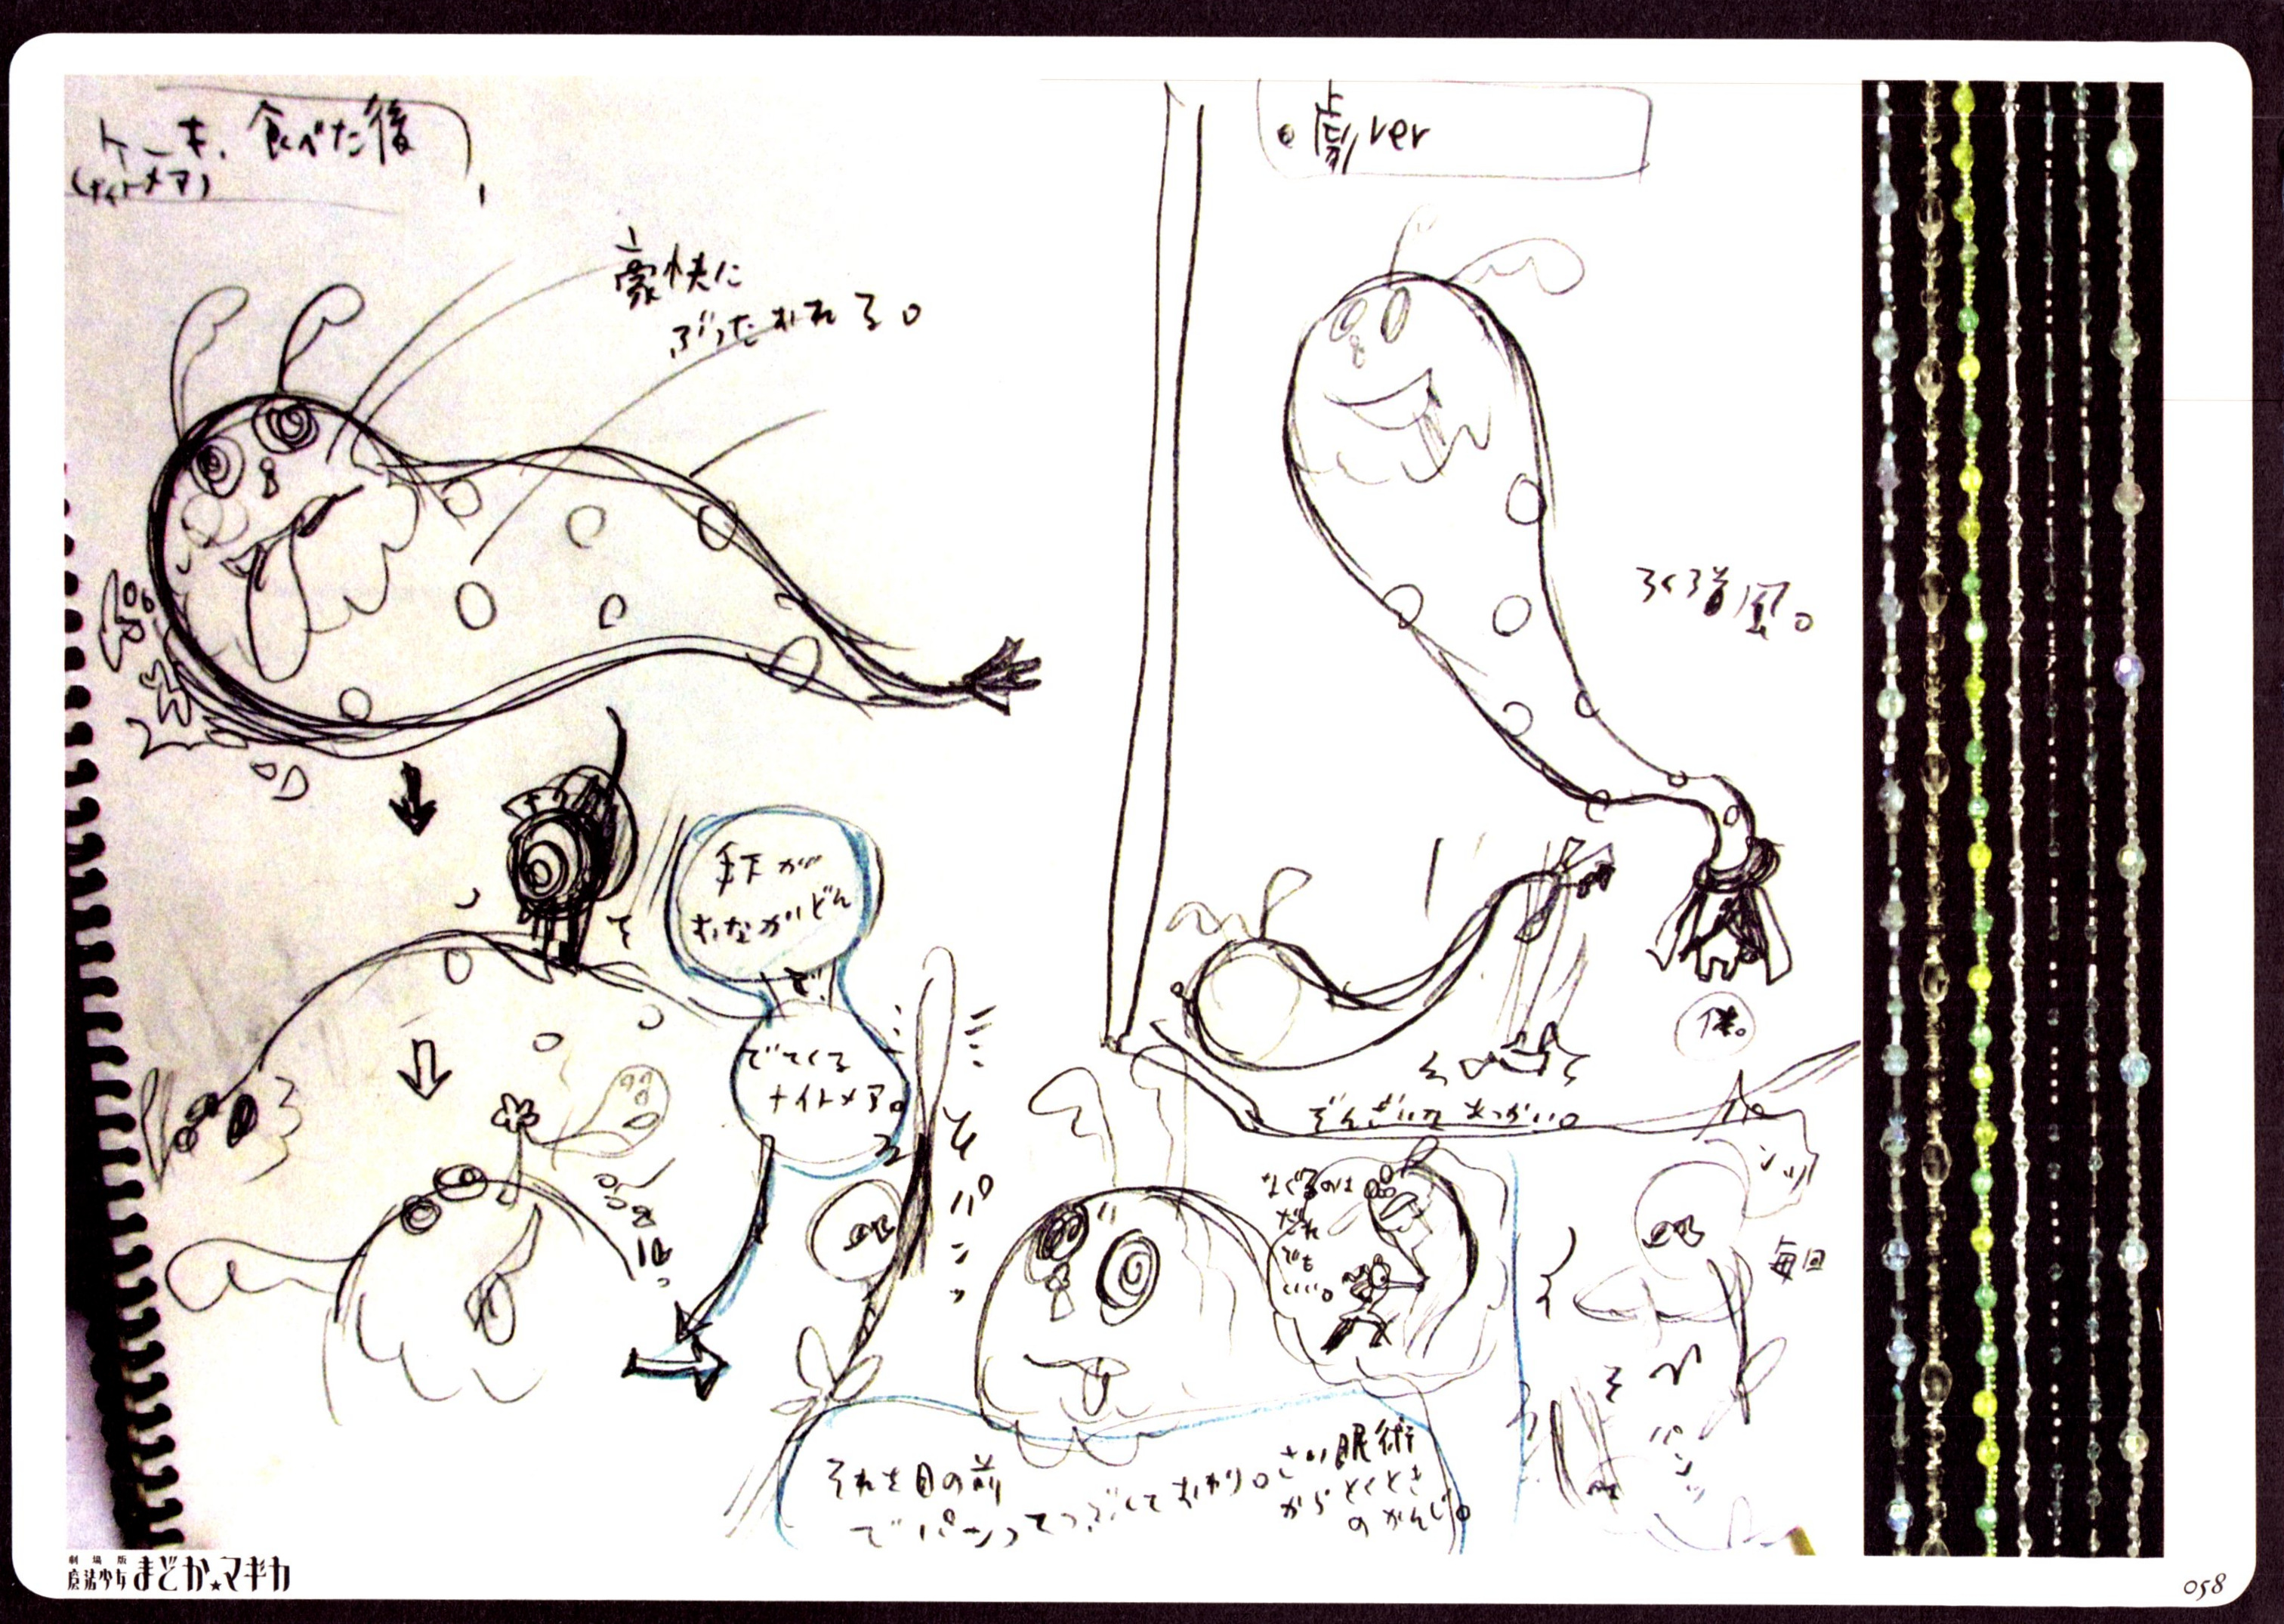 ケーキ、食べた後
(ナイトメア)
豪快に
ぶったおれる。
手下が
おなかにどん
で!
でてくる
ナイトメア。
パンッ
それを目の前
でパンってつぶしておわり。さい眠術
からとくとき
のかんじ。
劇ver
ろくろ首風。
体。
ぞんざいなあつかい。
なぐるのは
だれ
でも
いい。
毎回
パンッ
劇場版
魔法少女まどか★マギカ
058